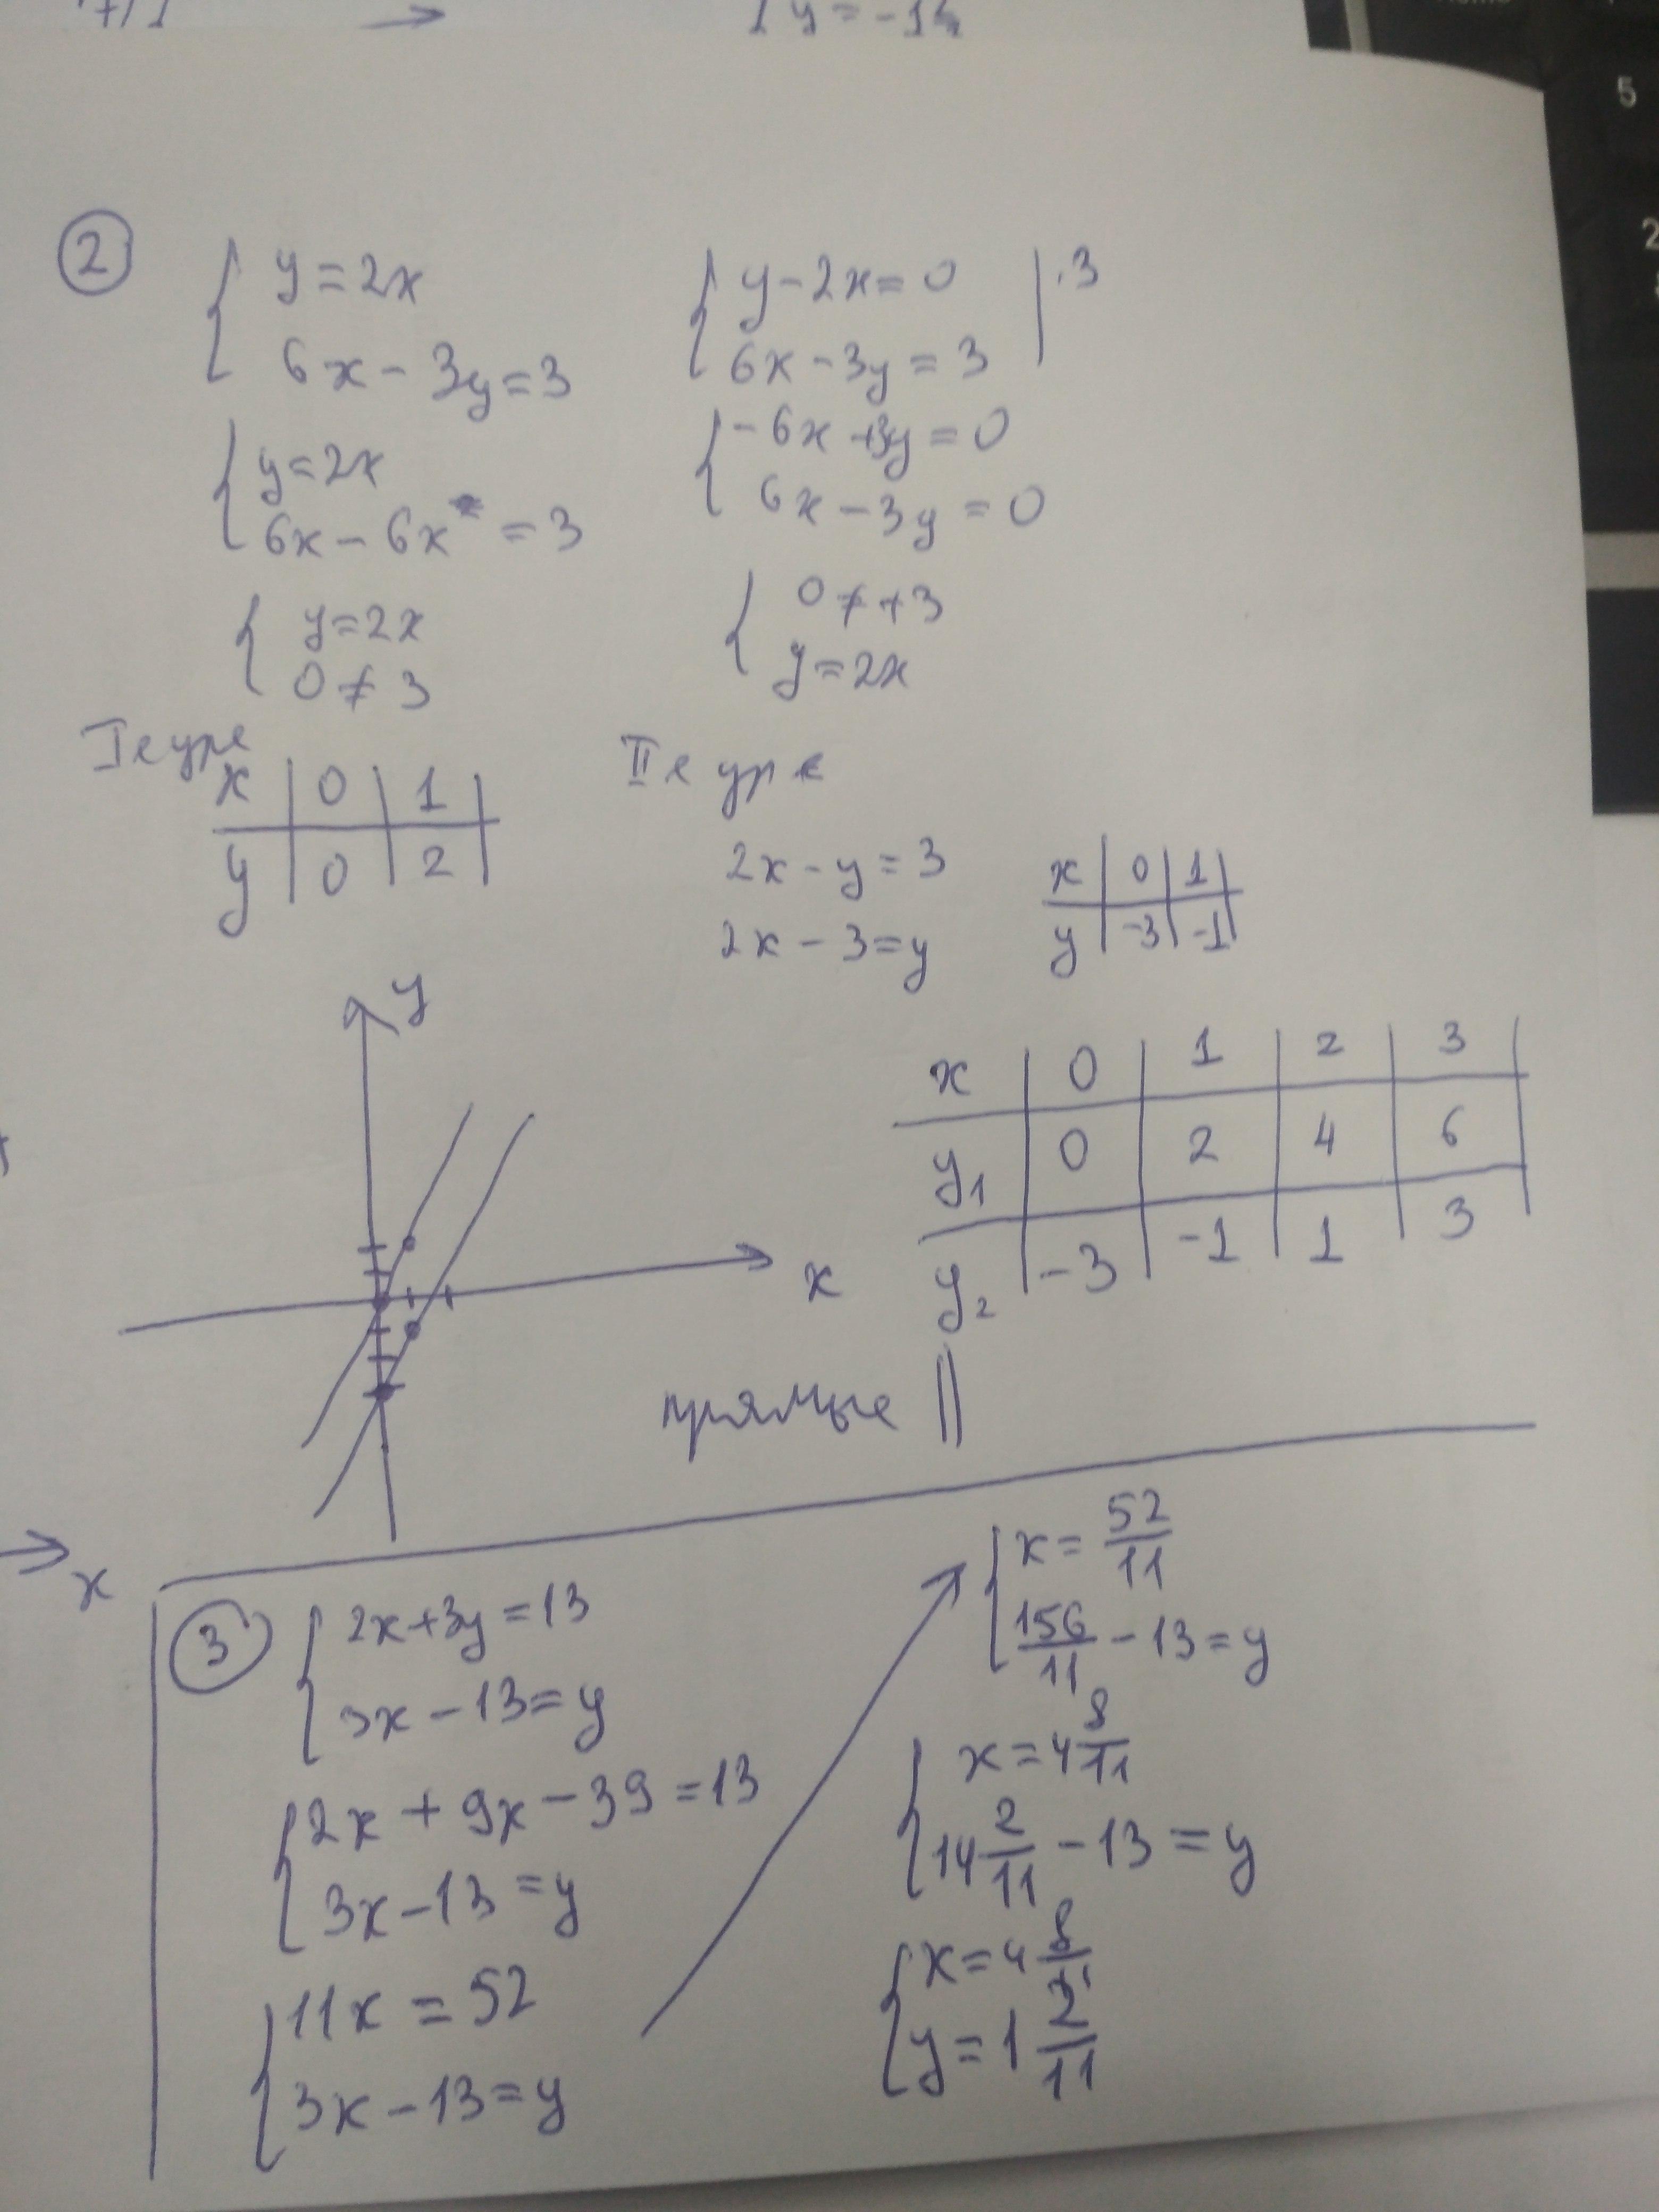 y = -14
②
{ y = 2x
6x - 3y = 3
{ y = 2x
6x - 6x = 3
{ y = 2x
0 ≠ 3
{ y - 2x = 0 | ·3
6x - 3y = 3
{ -6x + 3y = 0
6x - 3y = 0
{ 0 ≠ +3
y = 2x
I е ур е
x | 0 | 1
y | 0 | 2
II е ур е
2x - y = 3
2x - 3 = y
x | 0 | 1
y | -3 | -1
y
x
x | 0 | 1 | 2 | 3
y₁ | 0 | 2 | 4 | 6
y₂ | -3 | -1 | 1 | 3
прямые ||
x
③
{ 2x + 3y = 13
3x - 13 = y
{ 2x + 9x - 39 = 13
3x - 13 = y
{ 11x = 52
3x - 13 = y
{ x = 52/11
156/11 - 13 = y
{ x = 4 8/11
14 2/11 - 13 = y
{ x = 4 8/11
y = 1 2/11
5
2